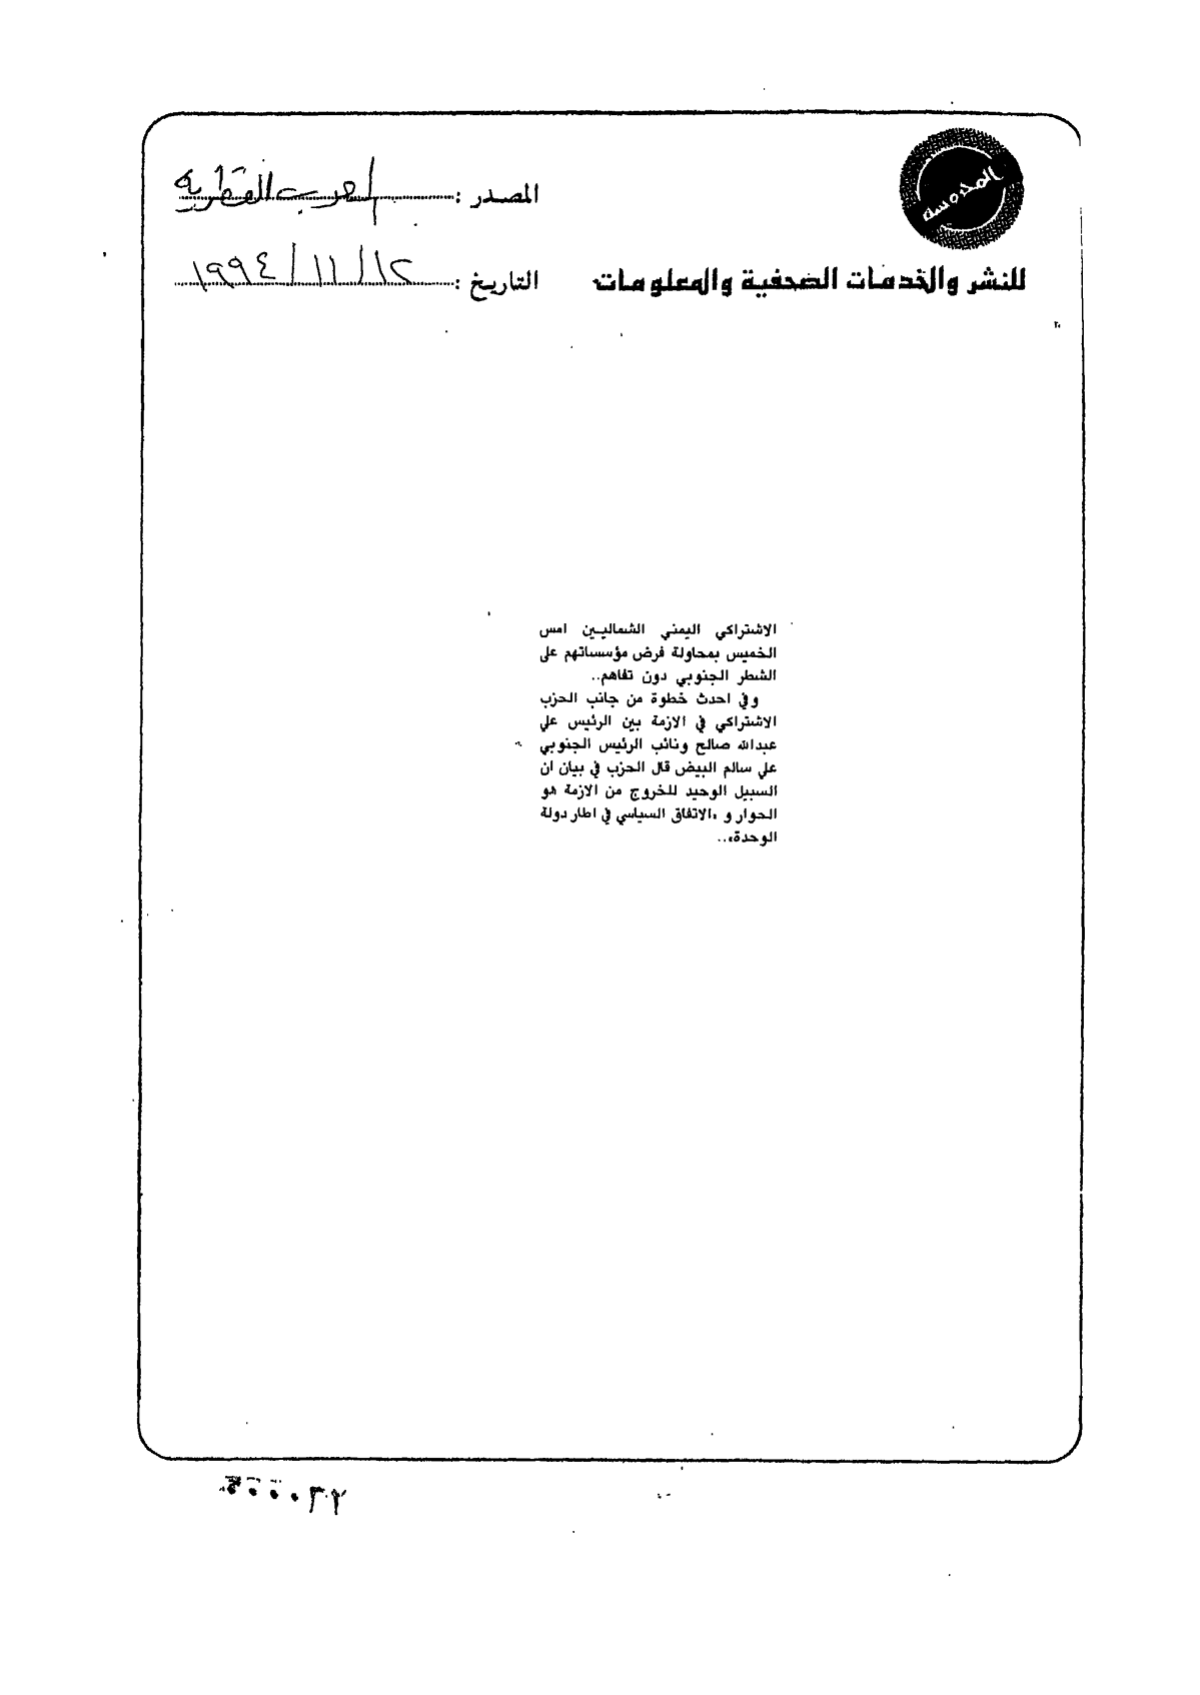 المحروسة
المصدر : العرب القطرية
للنشر والخدمات الصحفية والمعلومات
التاريخ : ١٩٩٤/١١/١٢
الاشتراكي اليمني الشماليين امس
الخميس بمحاولة فرض مؤسساتهم على
الشطر الجنوبي دون تفاهم..
وفي احدث خطوة من جانب الحزب
الاشتراكي في الازمة بين الرئيس علي
عبدالله صالح ونائب الرئيس الجنوبي
علي سالم البيض قال الحزب في بيان ان
السبيل الوحيد للخروج من الازمة هو
الحوار و «الاتفاق السياسي في اطار دولة
الوحدة»..